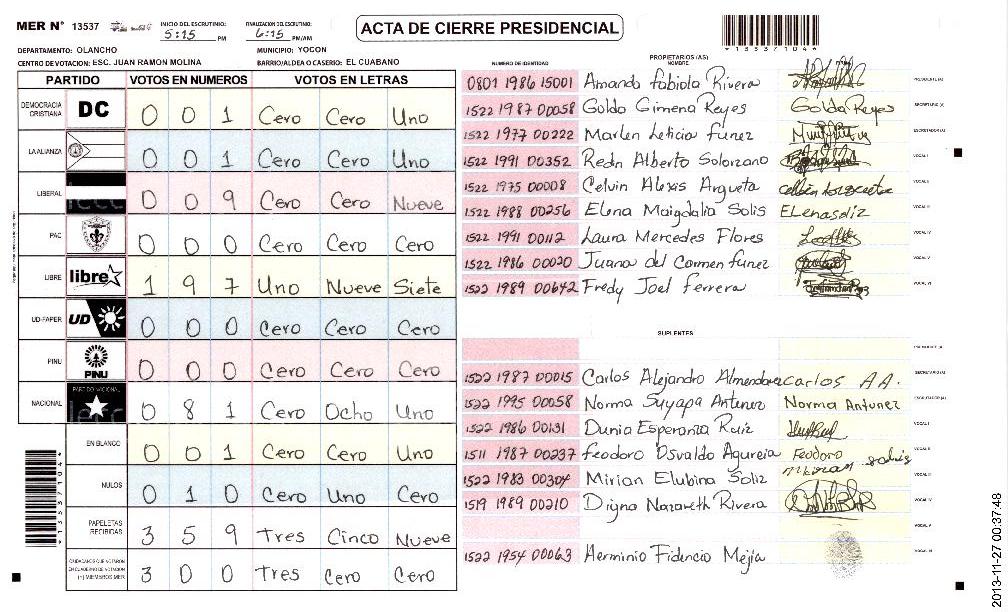 MER N° 13537
INICIO DEL ESCRUTINIO:
5:15 PM
FINALIZACION DEL ESCRUTINIO:
6:15 PM/AM
ACTA DE CIERRE PRESIDENCIAL
13537104
DEPARTAMENTO: OLANCHO
MUNICIPIO: YOCON
CENTRO DE VOTACION: ESC. JUAN RAMON MOLINA
BARRIO/ALDEA O CASERIO: EL CUABANO
PARTIDO VOTOS EN NUMEROS VOTOS EN LETRAS
DEMOCRACIA CRISTIANA DC 0 0 1 Cero Cero Uno
LA ALIANZA 0 0 1 Cero Cero Uno
LIBERAL 0 0 9 Cero Cero Nueve
PAC 0 0 0 Cero Cero Cero
LIBRE libre 1 9 7 Uno Nueve Siete
UD-FAPER UD 0 0 0 Cero Cero Cero
PINU PINU 0 0 0 Cero Cero Cero
NACIONAL PARTIDO NACIONAL 0 8 1 Cero Ocho Uno
EN BLANCO 0 0 1 Cero Cero Uno
NULOS 0 1 0 Cero Uno Cero
PAPELETAS RECIBIDAS 3 5 9 Tres Cinco Nueve
CIUDADANOS QUE VOTARON EN CUADERNO DE VOTACION (+) MIEMBROS MER 3 0 0 Tres Cero Cero
NUMERO DE IDENTIDAD
PROPIETARIOS (AS)
NOMBRE
0801 1986 15001 Amanda Fabiola Rivera PRESIDENTE (A)
1522 1987 00058 Golda Gimena Reyes Golda Reyes SECRETARIO (A)
1522 1977 00222 Marlen Leticia Funez ESCRUTADOR (A)
1522 1991 00352 Redn Alberto Solorzano VOCAL I
1522 1975 00008 Celvin Alexis Argueta VOCAL II
1522 1988 00256 Elena Maigdalia Solis VOCAL III
1522 1991 00112 Laura Mercedes Flores VOCAL IV
1522 1986 00020 Juana del Carmen Funez VOCAL V
1522 1989 00642 Fredy Joel Ferrera VOCAL VI
SUPLENTES
PRESIDENTE (A)
1522 1987 00015 Carlos Alejandro Almendarez carlos AA. SECRETARIO (A)
1522 1995 00058 Norma Suyapa Antunez Norma Antunez ESCRUTADOR (A)
1522 1986 00131 Dunia Esperanza Ruiz VOCAL I
1511 1987 00237 Feodoro Osvaldo Agureia Feodoro VOCAL II
1522 1983 00304 Mirian Elubina Soliz VOCAL III
1519 1989 00210 Digna Nazareth Rivera VOCAL IV
VOCAL V
1522 1954 00063 Herminio Fidencio Mejia VOCAL VI
2013-11-27 00:37:48